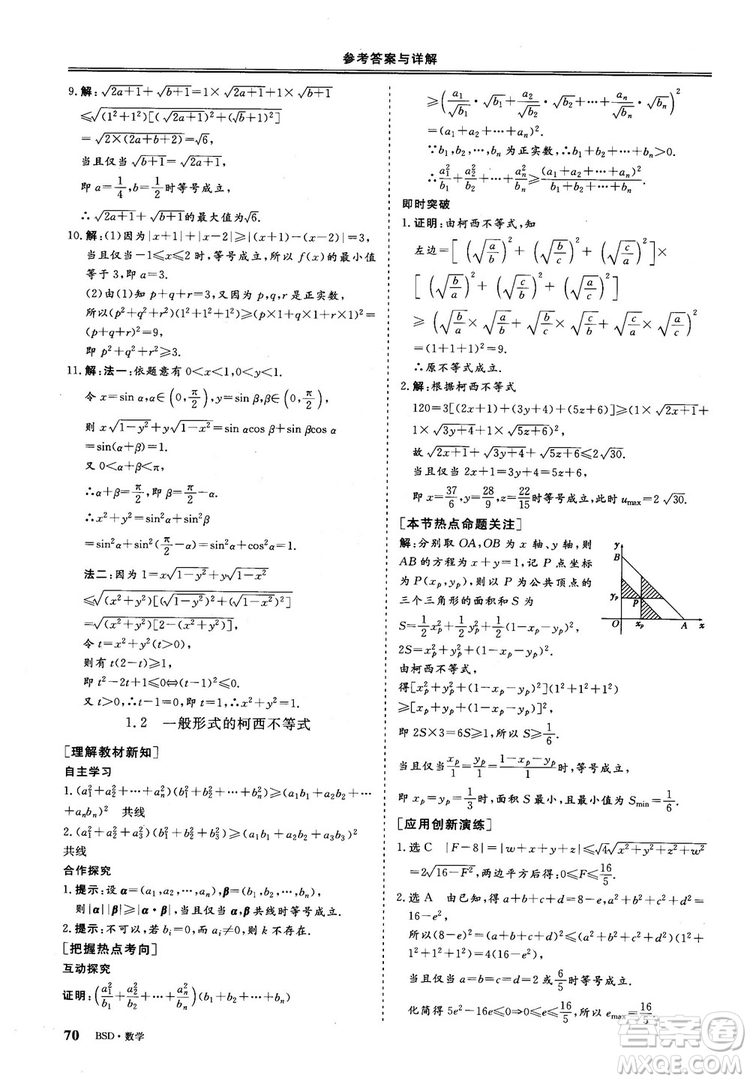 参考答案与详解
9. 解:√(2a+1)+√(b+1)=1×√(2a+1)+1×√(b+1)
≤√((1²+1²)[(√(2a+1))²+(√(b+1))²])
=√(2×(2a+b+2))=√6,
当且仅当√(b+1)=√(2a+1),
即 a=1/4,b=1/2时等号成立,
∴√(2a+1)+√(b+1)的最大值为√6.
10. 解:(1)因为|x+1|+|x-2|≥|(x+1)-(x-2)|=3,
当且仅当-1≤x≤2时,等号成立,所以 f(x)的最小值
等于3,即 a=3.
(2)由(1)知 p+q+r=3,又 p,q,r是正实数,
所以(p²+q²+r²)(1²+1²+1²)≥(p×1+q×1+r×1)²
=(p+q+r)²=9,
即 p²+q²+r²≥3.
11. 解:法一:依题意有0<x<1,0<y<1.
令 x=sin α,α∈(0,π/2),y=sin β,β∈(0,π/2),
则 x√(1-y²)+y√(1-x²)=sin αcos β+sin βcos α
=sin(α+β)=1.
又 0<α+β<π,
∴α+β=π/2,即β=π/2-α.
∴x²+y²=sin²α+sin²β
=sin²α+sin²(π/2-α)=sin²α+cos²α=1.
法二:因为1=x√(1-y²)+y√(1-x²)
≤√((x²+y²)[(√(1-y²))²+(√(1-x²))²])
=√((x²+y²)[2-(x²+y²)]),
令 t=x²+y²(t>0),
则有 t(2-t)≥1,
即 t²-2t+1≤0⇔(t-1)²≤0,
又 t>0,所以 t=1.故 x²+y²=1.
1.2 一般形式的柯西不等式
[理解教材新知]
自主学习
1. (a₁²+a₂²+…+aₙ²)(b₁²+b₂²+…+bₙ²)≥(a₁b₁+a₂b₂+…+
aₙbₙ)² 共线
2. (a₁²+a₂²+a₃²)(b₁²+b₂²+b₃²)≥(a₁b₁+a₂b₂+a₃b₃)²
共线
合作探究
1. 提示:设α=(a₁,a₂,…,aₙ),β=(b₁,b₂,…,bₙ),
则|α||β|≥|α·β|,当且仅当α,β共线时等号成立.
2. 提示:不可以,若 bᵢ=0而 aᵢ≠0,则 k不存在.
[把握热点考向]
互动探究
证明:(a₁²/b₁+a₂²/b₂+…+aₙ²/bₙ)(b₁+b₂+…+bₙ)
≥(a₁/√b₁·√b₁+a₂/√b₂·√b₂+…+aₙ/√bₙ·√bₙ)²
=(a₁+a₂+…+aₙ)².
∵b₁,b₂,…,bₙ为正实数,∴b₁+b₂+…+bₙ>0,
∴a₁²/b₁+a₂²/b₂+…+aₙ²/bₙ≥(a₁+a₂+…+aₙ)²/(b₁+b₂+…+bₙ)成立.
即时突破
1. 证明:由柯西不等式,知
左边=[(√(a/b))²+(√(b/c))²+(√(c/a))²]
×[(√(b/a))²+(√(c/b))²+(√(a/c))²]
≥(√(a/b)×√(b/a)+√(b/c)×√(c/b)+√(c/a)×√(a/c))²
=(1+1+1)²=9,
∴原不等式成立.
2. 解:根据柯西不等式
120=3[(2x+1)+(3y+4)+(5z+6)]≥(1×√(2x+1)+
1×√(3y+4)+1×√(5z+6))²,
故√(2x+1)+√(3y+4)+√(5z+6)≤2√30.
当且仅当2x+1=3y+4=5z+6,
即 x=37/6,y=28/9,z=22/15时等号成立,此时 uₘₐₓ=2√30.
[本节热点命题关注]
解:分别取OA,OB为 x轴、y轴,则
AB的方程为 x+y=1,记 P点坐标
为P(xₚ,yₚ),则以 P为公共顶点的
三个三角形的面积和 S为
S=1/2xₚ²+1/2yₚ²+1/2(1-xₚ-yₚ)²,
2S=xₚ²+yₚ²+(1-xₚ-yₚ)².
由柯西不等式,
得[xₚ²+yₚ²+(1-xₚ-yₚ)²](1²+1²+1²)
≥[xₚ+yₚ+(1-xₚ-yₚ)]²,
即 2S×3=6S≥1,所以 S≥1/6.
当且仅当xₚ/1=yₚ/1=(1-xₚ-yₚ)/1时,等号成立,
即 xₚ=yₚ=1/3时,面积和 S最小,且最小值为 Sₘᵢₙ=1/6.
[应用创新演练]
1. 选 C |F-8|=|w+x+y+z|≤√4√(x²+y²+z²+w²)
=2√(16-F²),两边平方后得:0≤F≤16/5.
2. 选 A 由已知得 a+b+c+d=8-e,a²+b²+c²+d²=
16-e²,
所以(a²+b²+c²+d²)(1²+1²+1²+1²)≥(a+b+c+
d)²,即 4(16-e²)≥(8-e)²,
当且仅当 a=b=c=d=2或6/5时等号成立,
化简得 5e²-16e≤0⇒0≤e≤16/5,所以 eₘₐₓ=16/5.
y
B
yₚ
P
O
xₚ
A
x
70 BSD·数学
答案圈
MXQE.COM